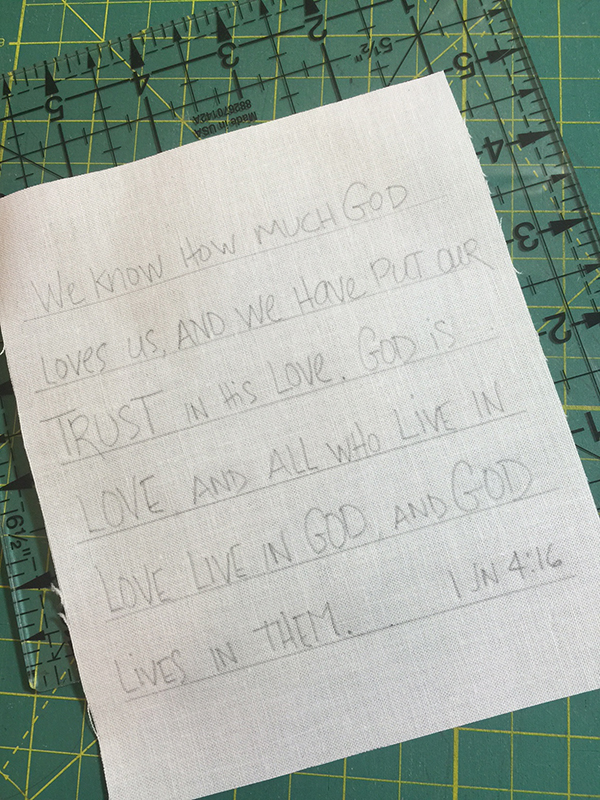 5 4 3 2 1
5½"
Made in USA
882670142A
5
4
3
2
1
6½"
We KNOW HOW MUCH GOD
LOVes US, AND We HAVe PUT OUR
TRUST IN His LOVe. GOD iS
LOVE, AND ALL WHO LiVE IN
LOVE LIVE IN GOD, AND GOD
LiVES IN THEM... 1 JN 4:16